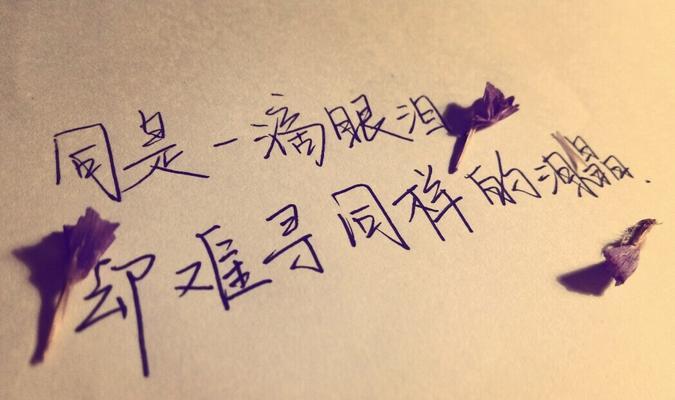 同是一滴眼泪
却难寻同样的晶.